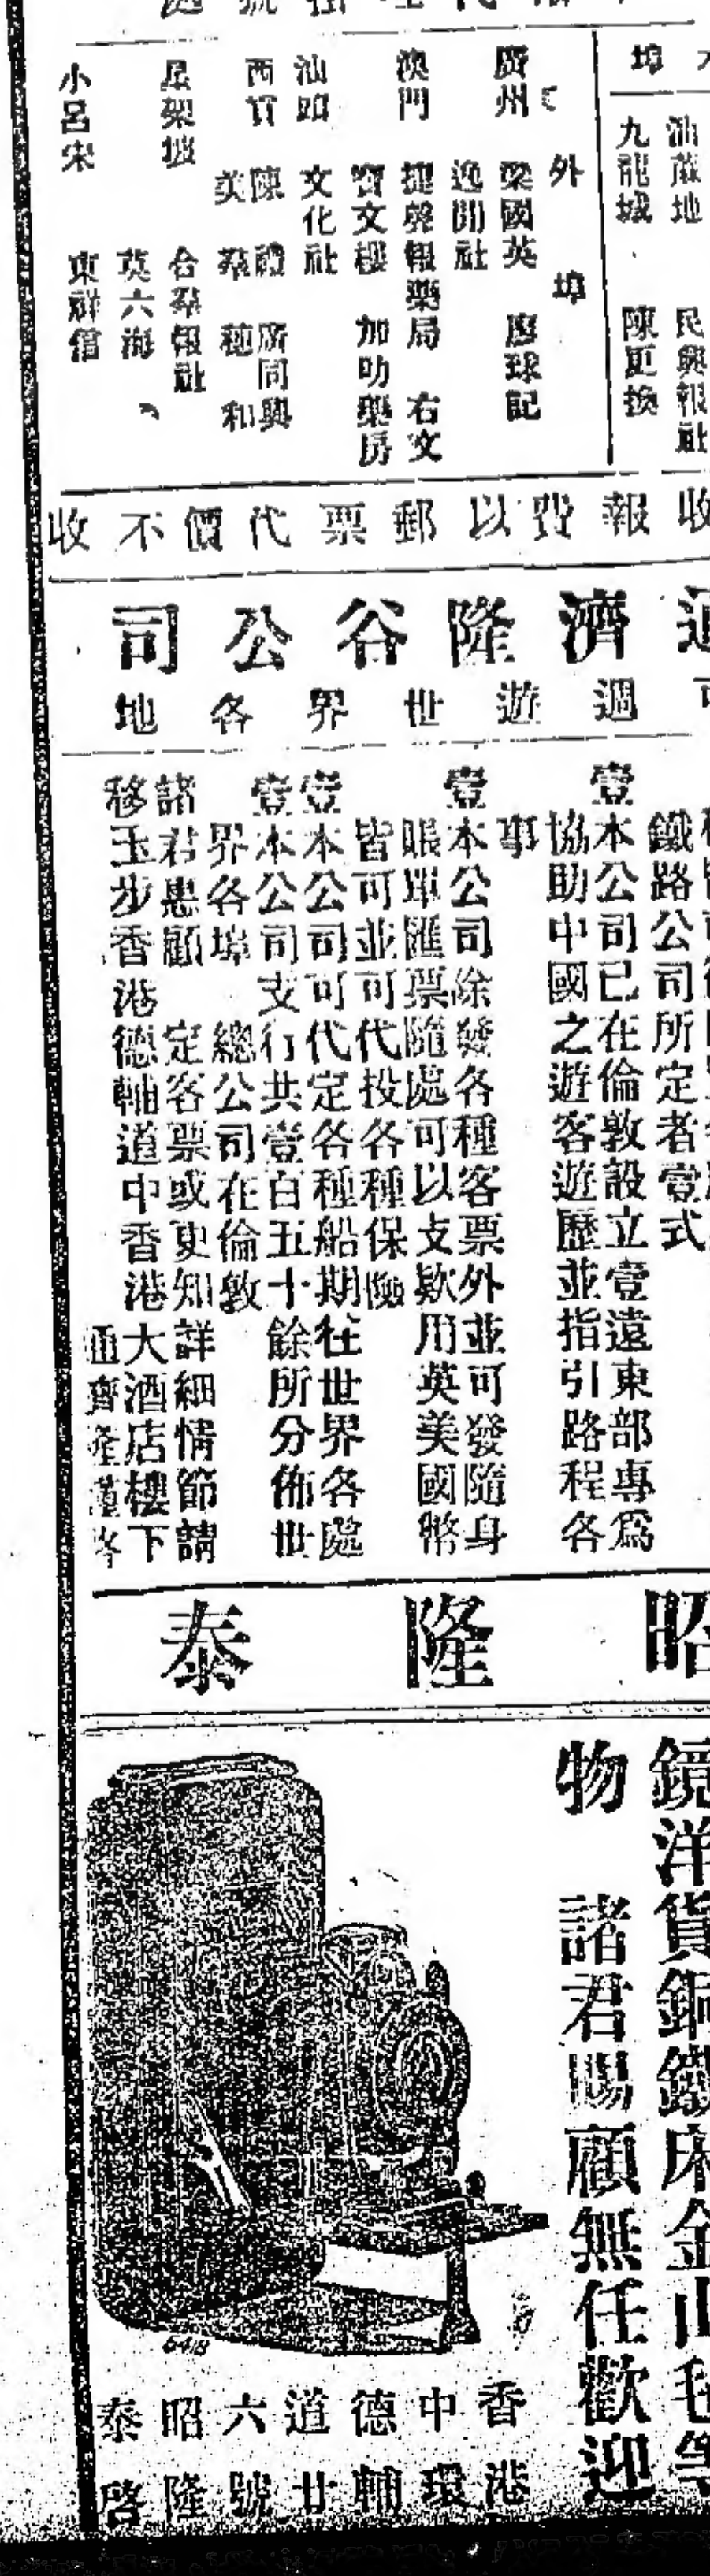 埠
汕蔴地 民興報社
九龍城 陳更換
外埠
廣州 梁國英 廖球記
逸開社
澳門 捷聲報藥局 右文
寶文樓 加叻藥房
汕頭 文化社
西貢 陳禮 廣同興
美羣 穗和
星架坡 合羣報社
莫六海
小呂宋 東祥信
收報費以郵票代價不收
濟隆谷公司
週遊世界各地
鐵路公司所定者壹式
壹本公司已在倫敦設立壹遠東部專爲
協助中國之遊客遊歷並指引路程各
事
壹本公司除發各種客票外並可發隨身
賬單匯票隨處可以支欵用英美國幣
皆可並可代投各種保險
壹本公司可代定各種船期往世界各處
壹本公司支行共壹百五十餘所分佈世
界各埠 總公司在倫敦
諸君惠顧 定客票或更知詳細情節請
移玉步香港德輔道中香港大酒店樓下
通濟隆謹啓
昭隆泰
鏡洋貨銅鐵床金山毛等
物 諸君賜顧無任歡迎
6418
香港
中環
德輔
道廿
六號
昭隆
泰啓